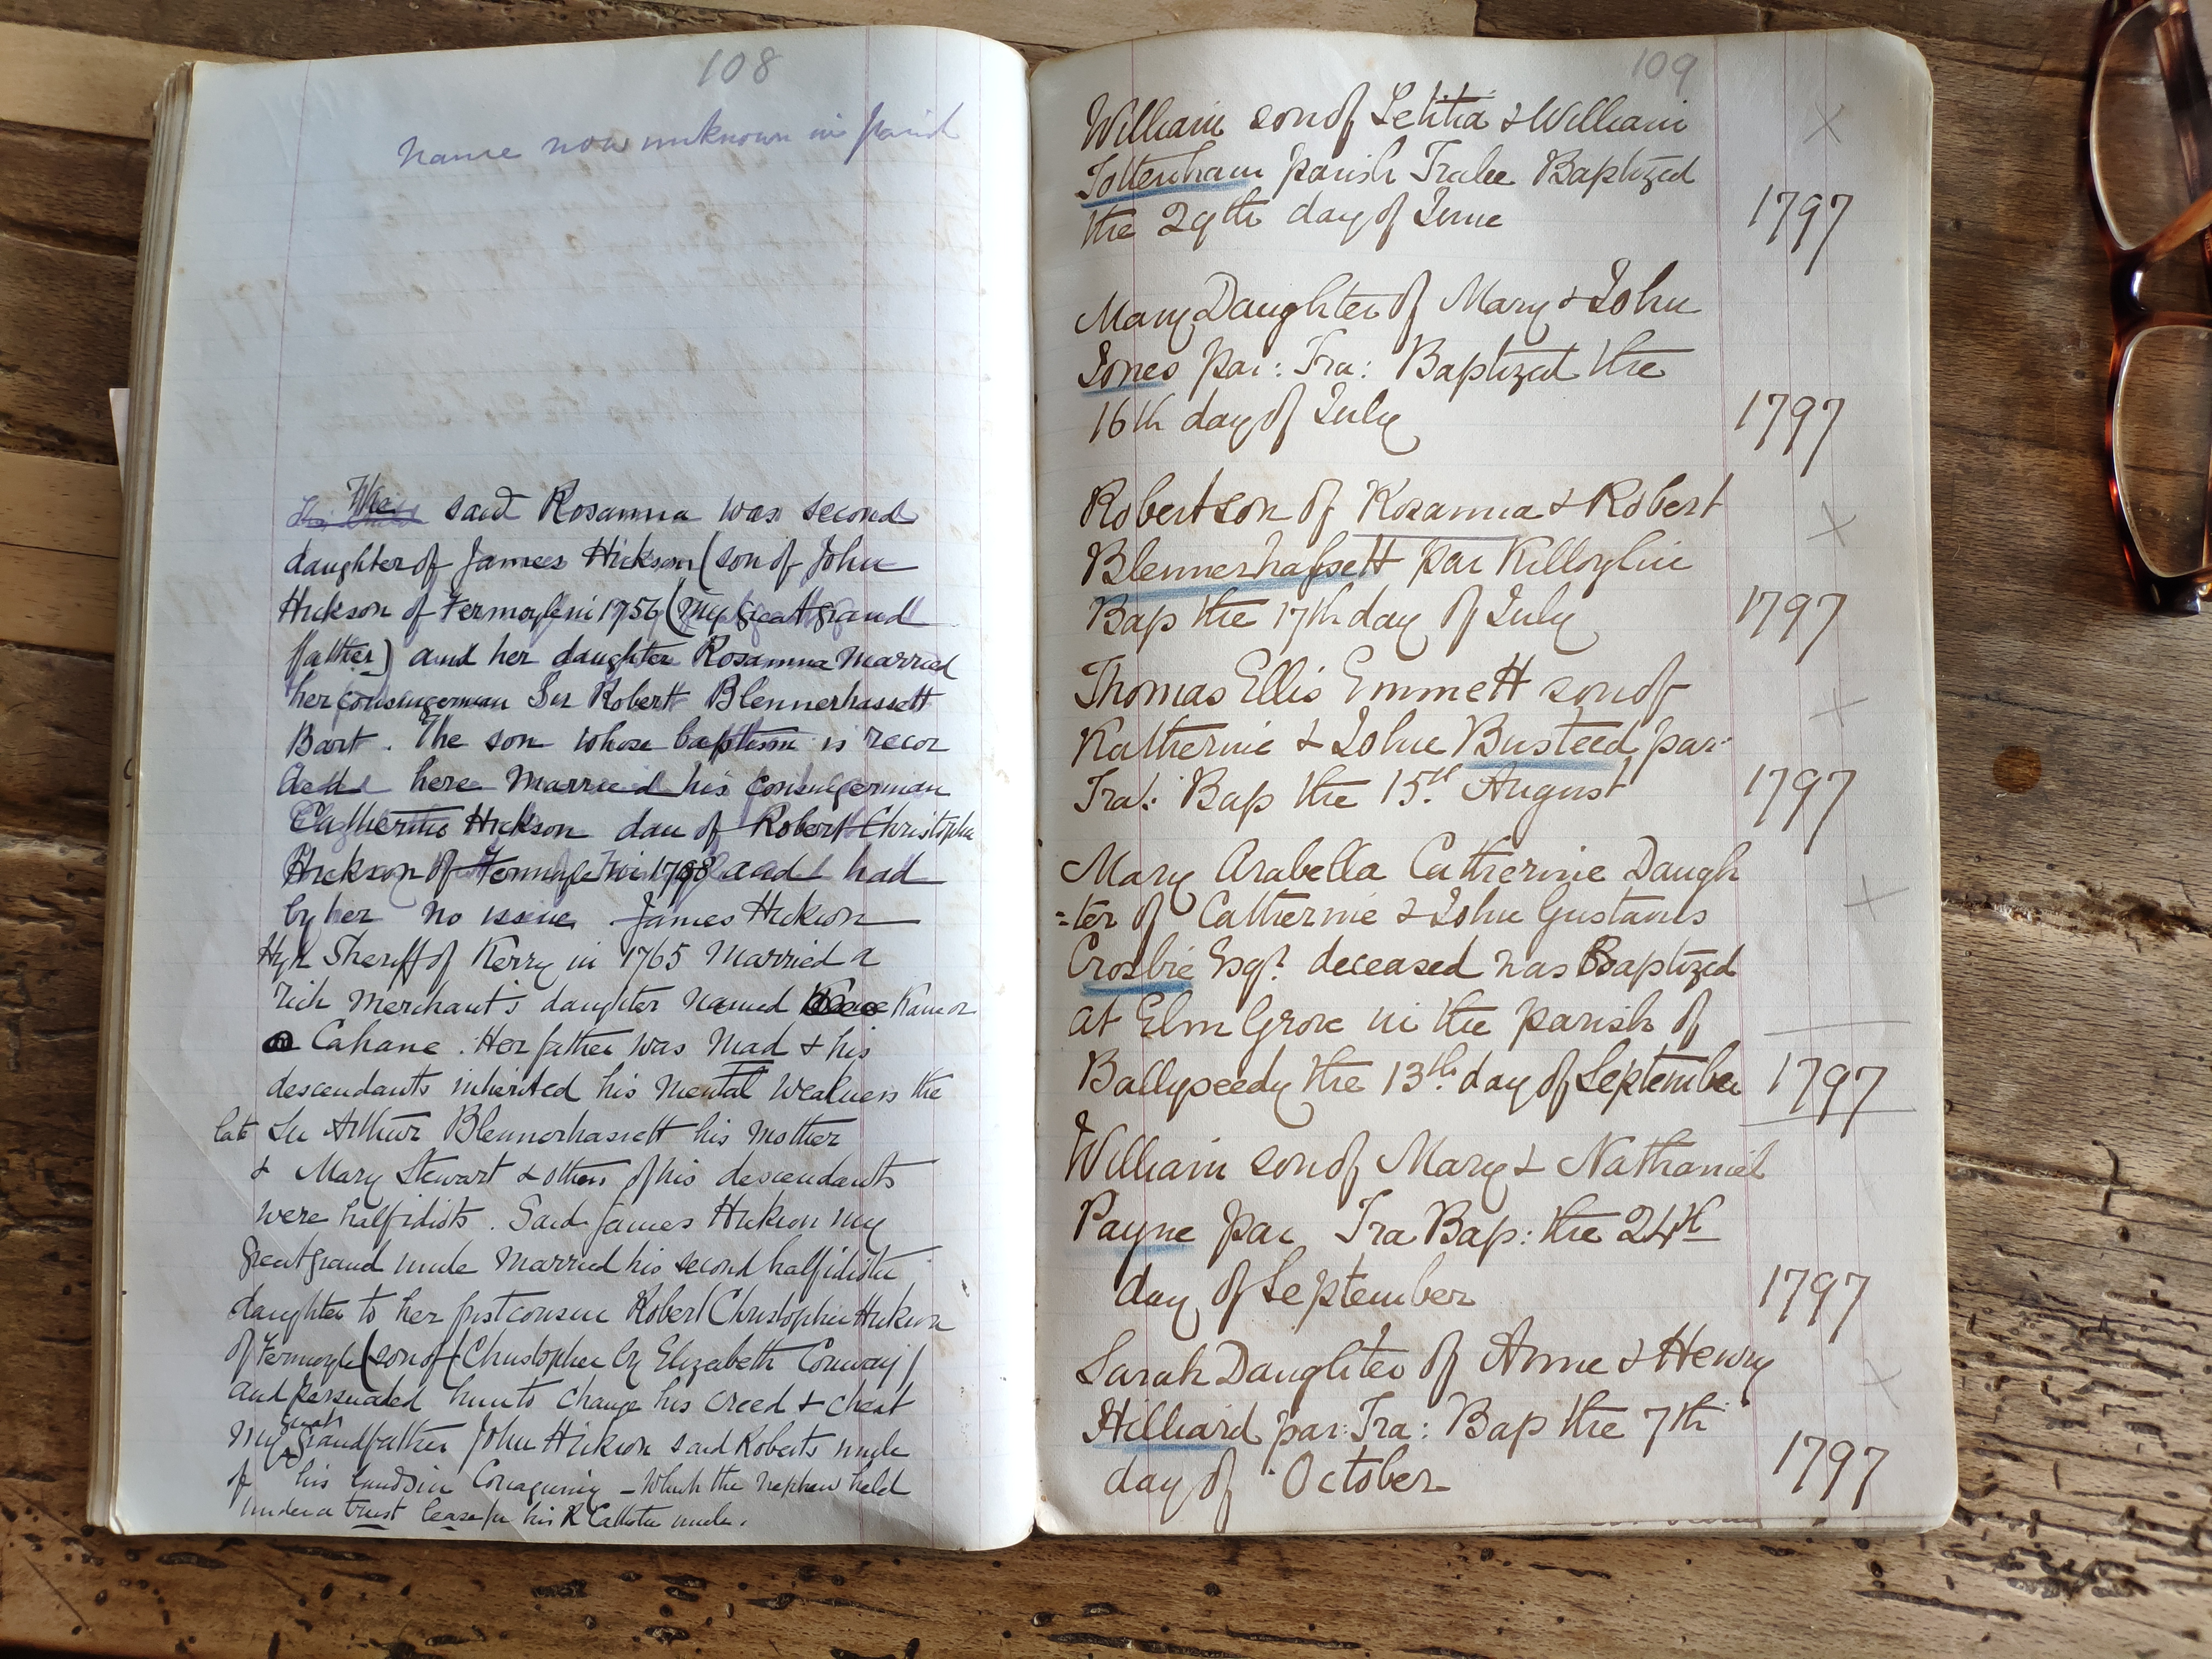 108
Name now unknown in parish
The said Rosanna was second
daughter of James Hickson (son of John
Hickson of Fermoyle in 1756 (my great grand
father) and her daughter Rosanna married
her cousingerman Sir Robert Blennerhassett
Bart. The son whose baptism is recor
ded here married his cousingerman
Catherine Hickson dau of Robert Christopher
Hickson of Fermoyle in 1798 and had
by her no issue James Hickson
High Sheriff of Kerry in 1765 married a
rich merchant's daughter named Kane or
Cahane. Her father was mad & his
descendants inherited his mental weakness the
late Sir Arthur Blennerhassett his mother
& Mary Stewart & others of his descendants
were half idiots. Said James Hickson my
great grand uncle married his second half idiotic
daughter to her first cousin Robert Christopher Hickson
of Fermoyle (son of Christopher by Elizabeth Conway)
and persuaded him to change his creed & cheat
my great grandfather John Hickson said Roberts uncle
of his lands in - which the nephew held
under a trust lease for his R Catholic uncle.
109
William son of Letitia & William
Tottenham parish Tralee Baptized
the 29th day of June 1797
Mary Daughter of Mary & John
Jones par: Tra: Baptized the
16th day of July 1797
Robert son of Rosanna & Robert
Blennerhassett par Killorglin
Bap the 17th day of July 1797
Thomas Ellis Emmett son of
Katherine & John Busteed par:
Tra: Bap the 15th August 1797
Mary Arabella Catherine Daugh
=ter of Catherine & John Gustavus
Crosbie Esqr. deceased was Baptized
at Elm Grove in the parish of
Ballyseedy the 13th day of September 1797
William son of Mary & Nathaniel
Payne par Tra Bap: the 24th
day of September 1797
Sarah Daughter of Anne & Henry
Hilliard par: Tra: Bap the 7th
day of October 1797